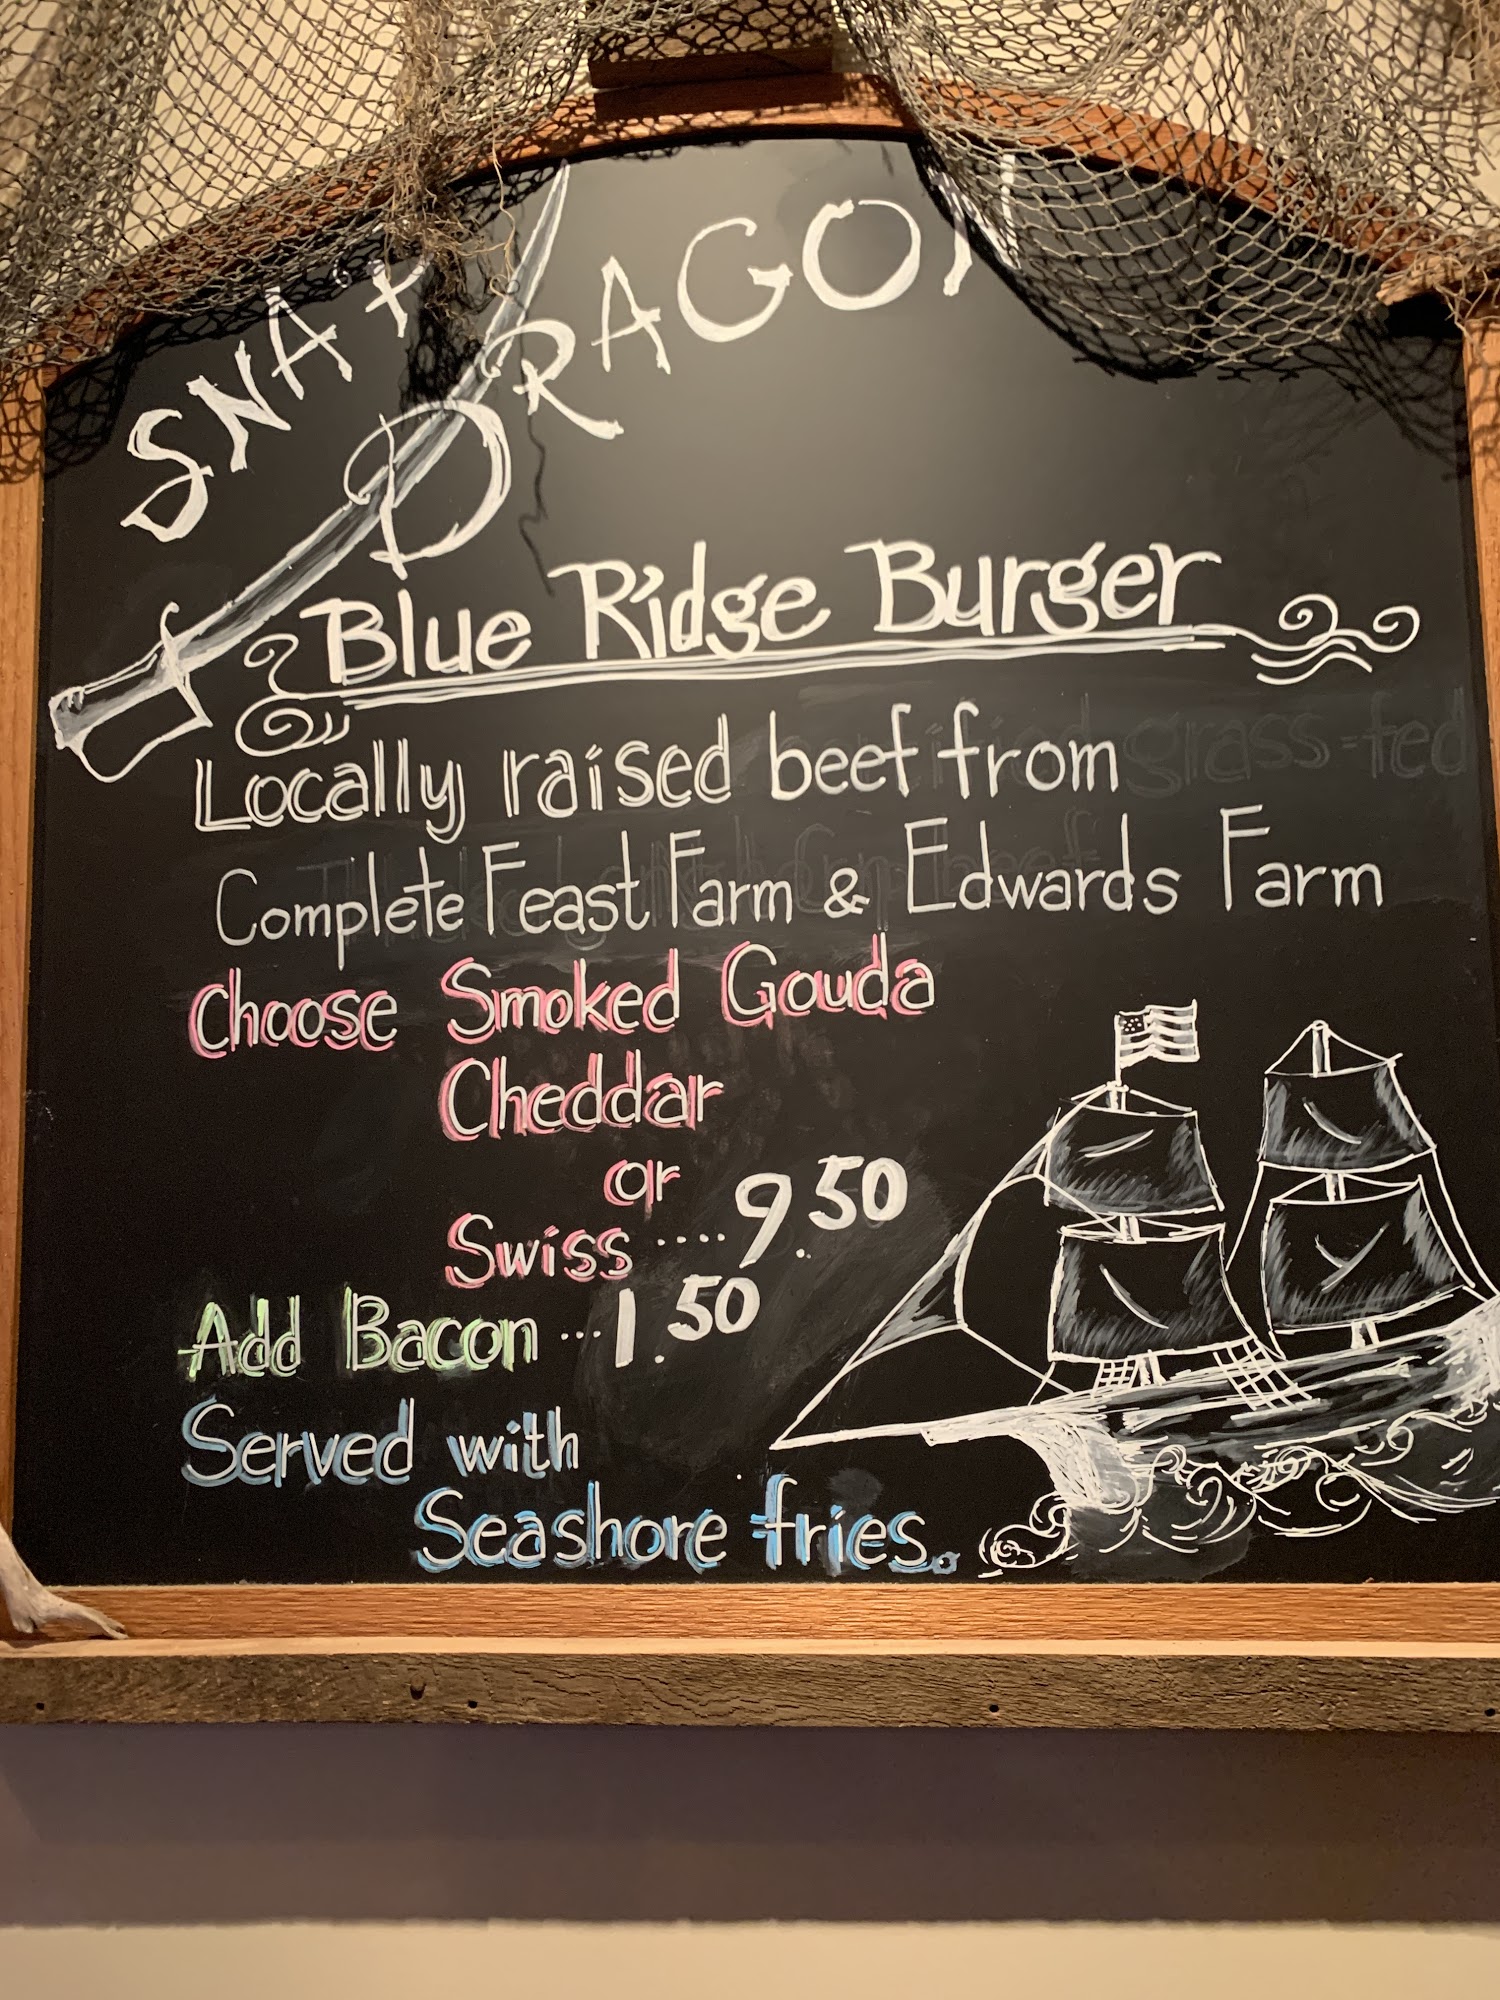 SNAP DRAGON
Blue Ridge Burger
Locally raised beef from
Complete Feast Farm & Edwards Farm
Choose Smoked Gouda
Cheddar
or
Swiss ....9.50
Add Bacon ...1.50
Served with
Seashore fries.
grass-fed